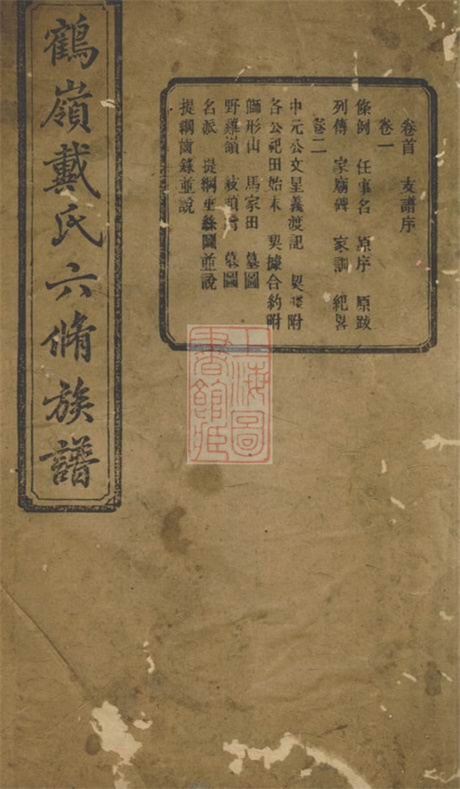 鶴嶺戴氏六脩族譜
卷首 支譜序
卷一
條例 任事名 原序 原跋
列傳 家廟碑 家訓 紀畧
卷二
中元公文星義渡記 契 附
各公祀田始末 契據合約附
獅形山 馬家田 墓圖
野雞嶺 墓圖
名派 提綱垂絲圖並說
提綱齒錄並說
上海圖書館藏